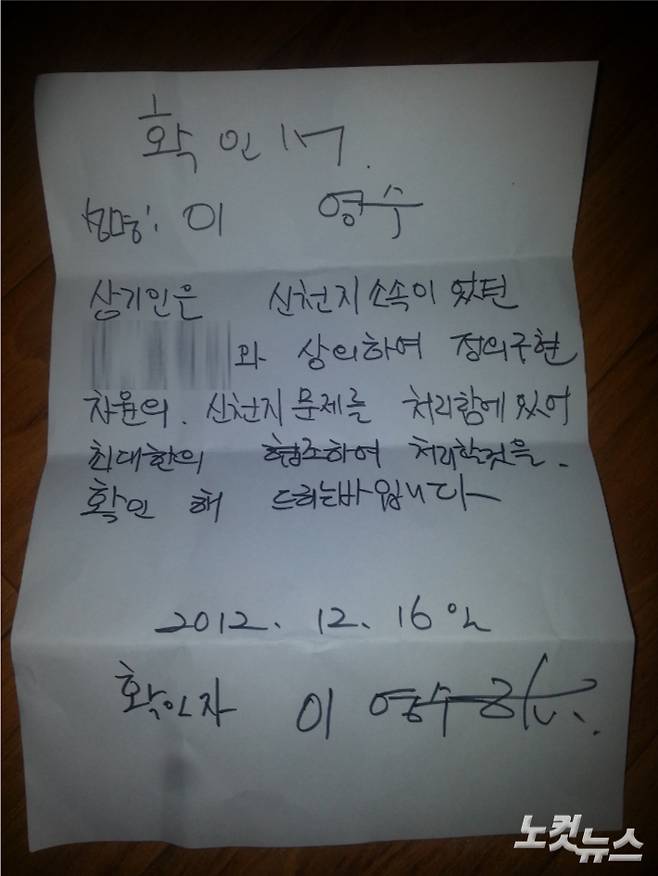 확인서.
성명: 이 영수
상기인은 신천지 소속이 었던
와 상의하여 정의구현
차원의. 신천지 문제를 처리함에 있어
최대한의 협조하여 처리할것을.
확인 해 드리는바입니다
2012. 12. 16일
확인자 이 영수
노컷뉴스